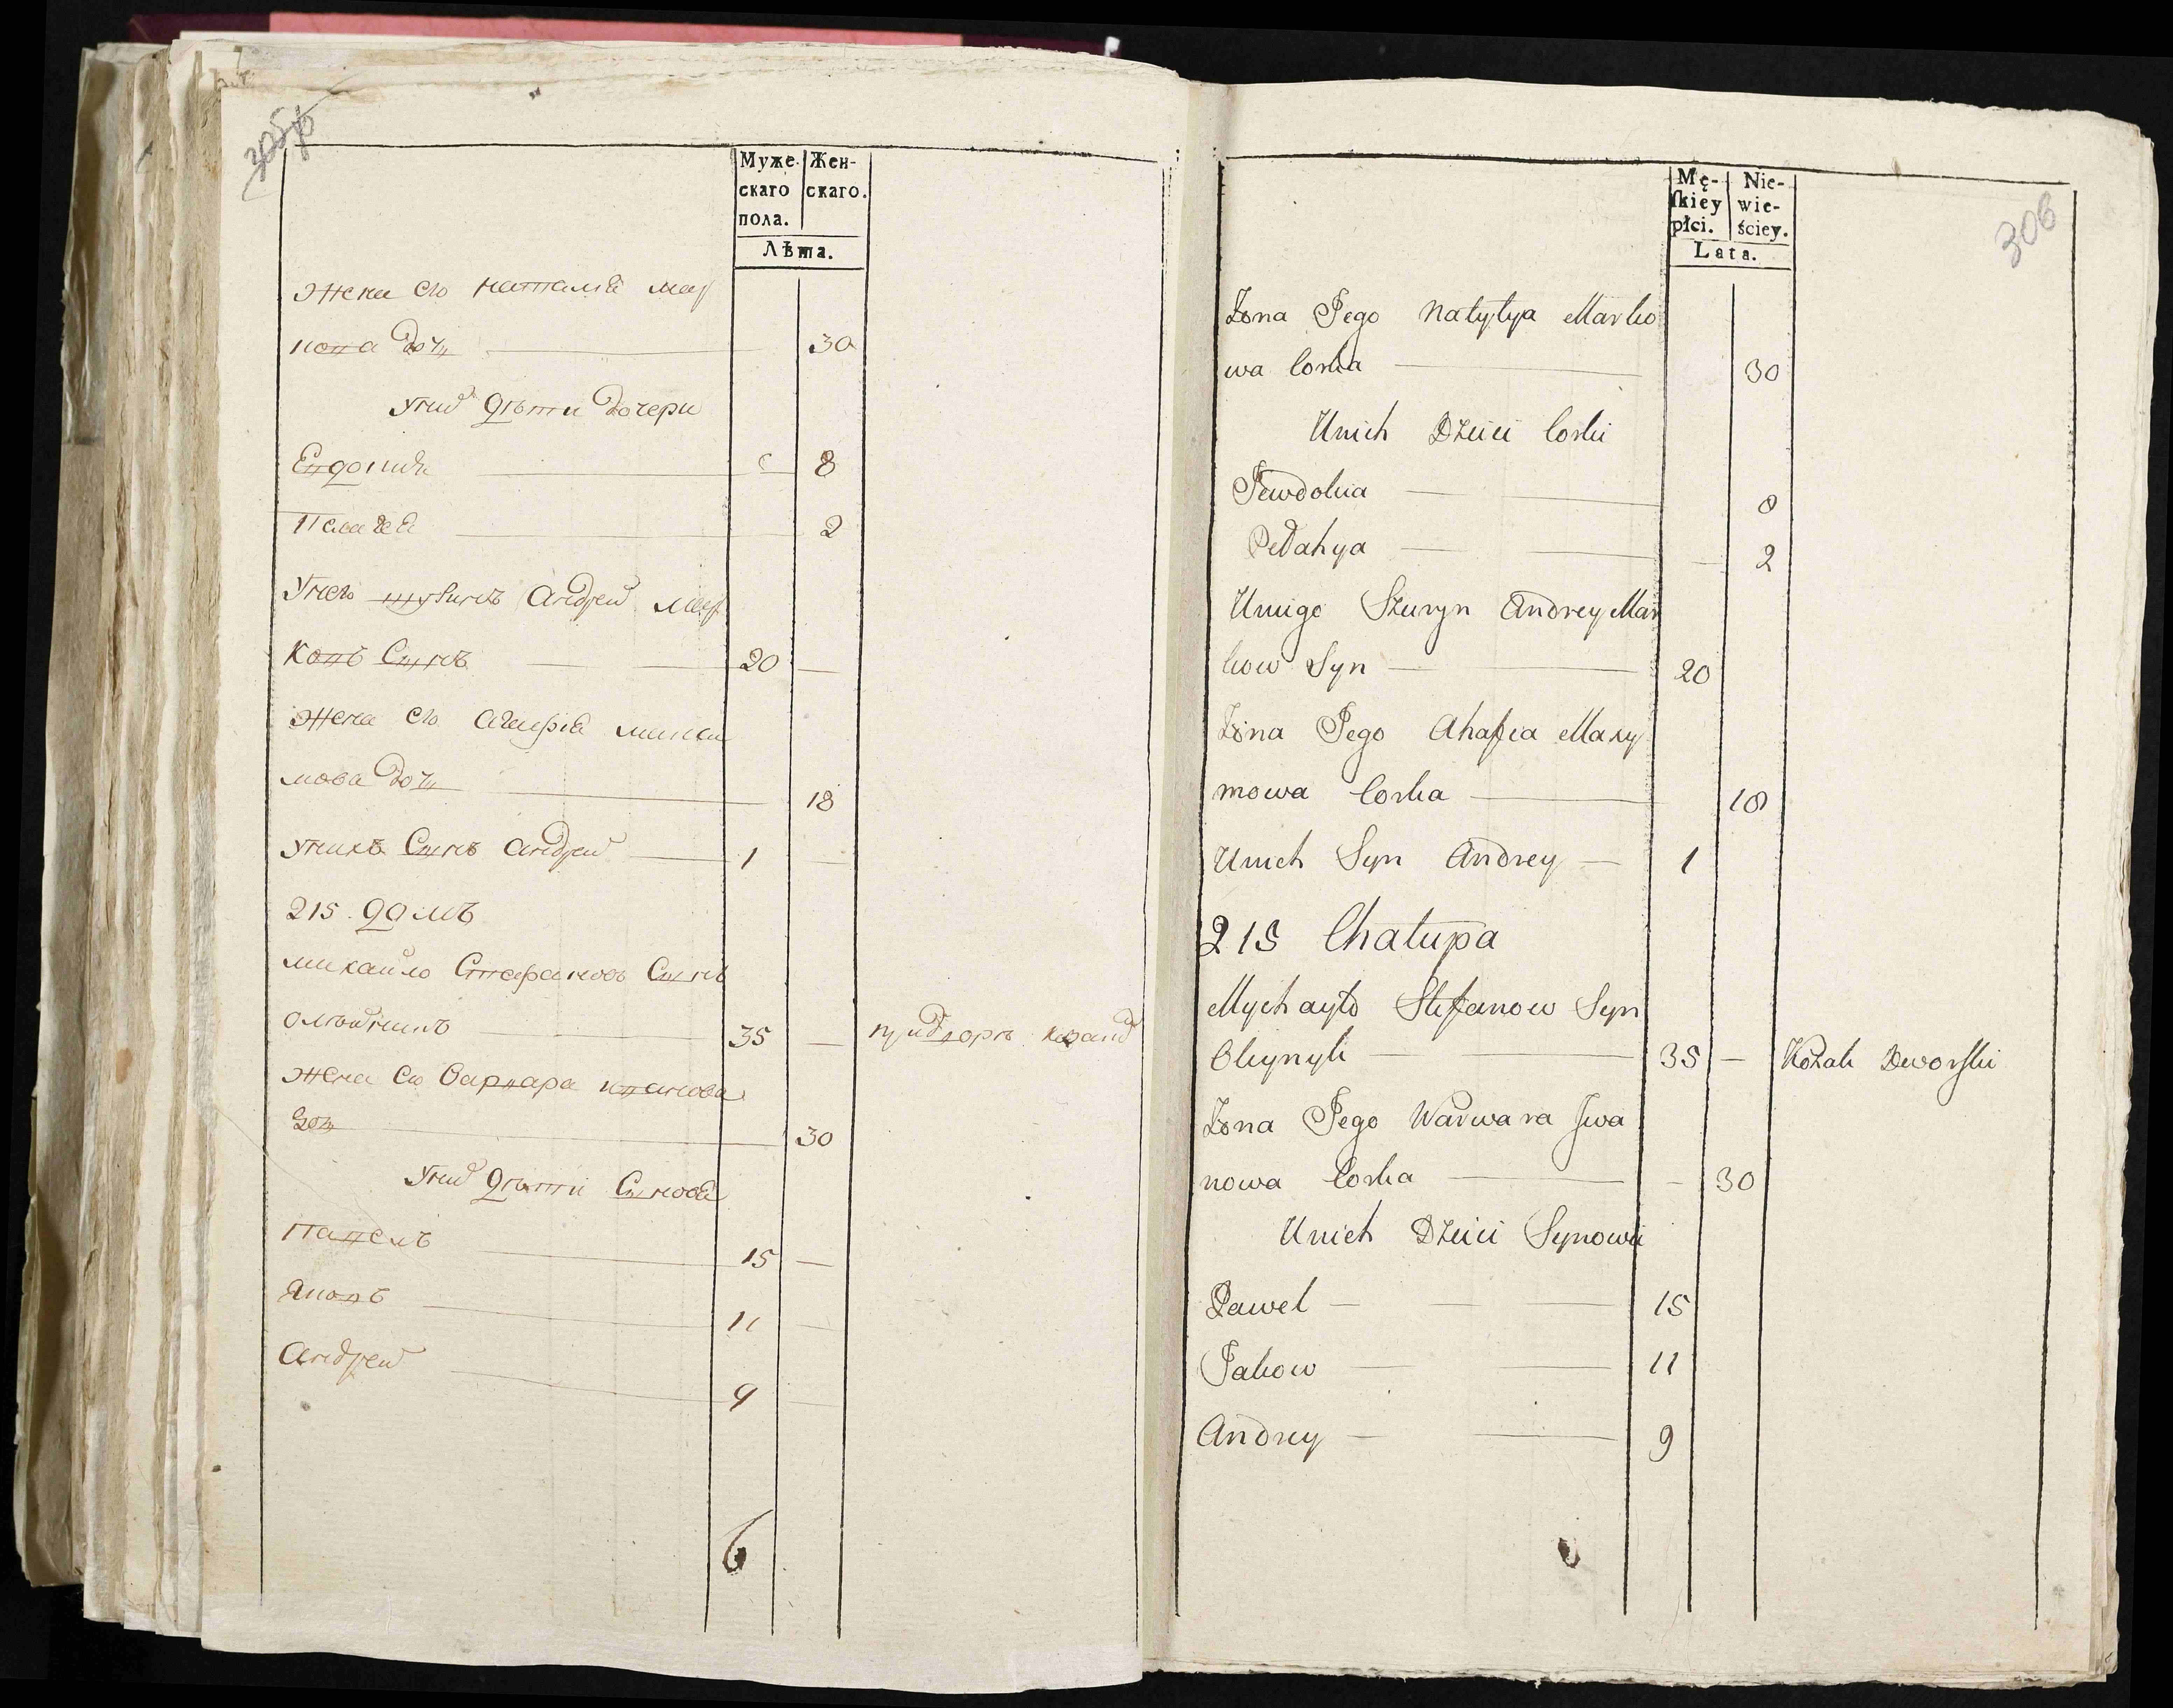 305 об
Муже-
скаго
пола.
Жен-
скаго.
Лѣта.
Жена его наталиа мар
кова дочь 30
унид дѣти дочери
Евдокиа 8
Пелагеа 2
Унего шуринъ андреи мар
ковъ Сынъ 20
Жена его агафиа макси
мова дочь 18
унихъ Сынъ андреи 1
215 домъ
михаило Стефановъ Сынъ
олѣйникъ 35
Жена его варвара иванова
дочь 30
унид дѣти Сыновя
Павелъ 15
Яковъ 11
Андреи 9
6
306
Mę-
skiey
płci.
Nie-
wie-
ściey.
Lata.
Żona Jego Natylya Marko
wa Corka 30
Unich Dzieci Corki
Jewdokia 8
Pelahya 2
Uniego Szuryn Andrey Mar
kow Syn 20
Żona Jego Ahafia Maxy
mowa Corka 18
Unich Syn Andrey 1
215 Chałupa
Mychayło Stefanow Syn
Oleynyk 35 Kozak Dworski
Żona Jego Warwara Jwa
nowa Corka 30
Unich Dzieci Synowie
Pawel 15
Jakow 11
Andrey 9